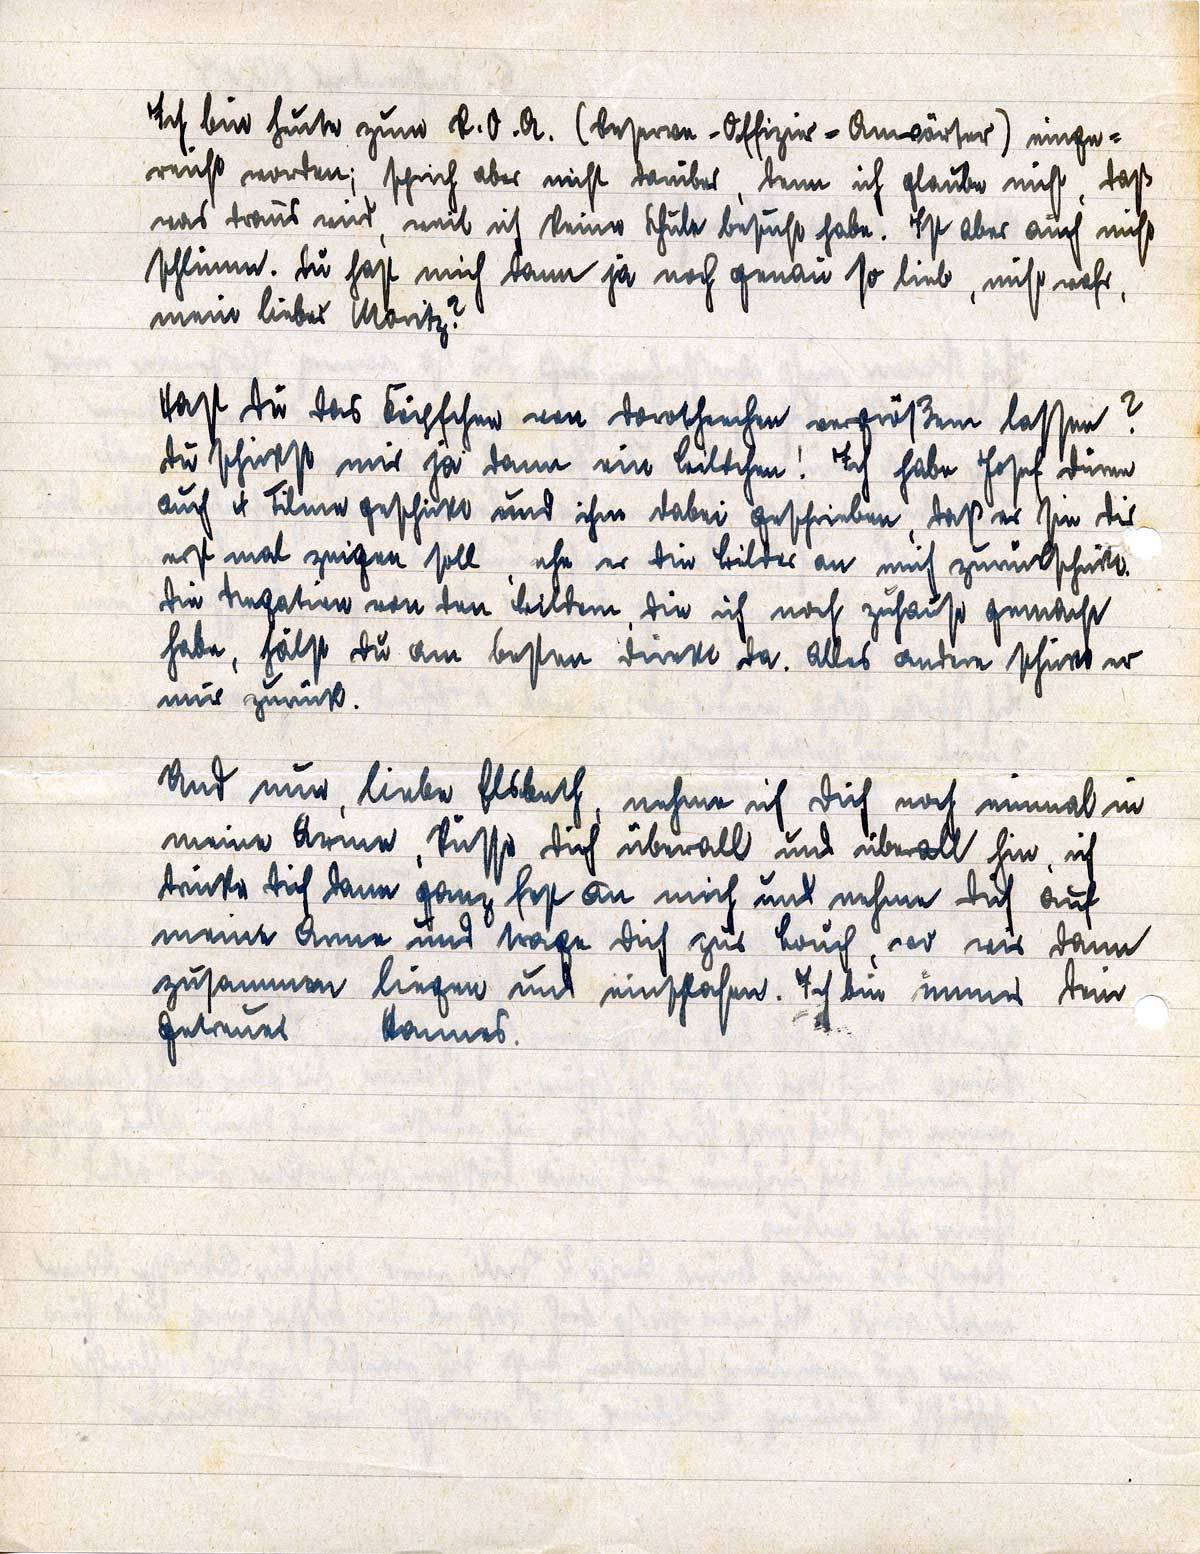 Ich bin heute zum R.O.A. (Reserve-Offizier-Anwärter) einge-
reicht worden; sprich aber nicht darüber, denn ich glaube nicht, daß
was draus wird, weil ich keine Schule besucht habe. Ist aber auch nicht
schlimm. Du hast mich dann ja noch genau so lieb, nicht wahr,
mein lieber Moritz?
Hast Du das Köpfchen von Dorotheechen vergrößern lassen?
Du schickst mir ja dann ein Bildchen! Ich habe Josef Düren
auch 4 Filme geschickt und ihm dabei geschrieben, daß er sie Dir
erst mal zeigen soll, ehe er die Bilder an mich zurückschickt.
Die Negative von den Bildern, die ich noch zuhause gemacht
habe, hälst Du am besten direkt da. Alles andere schickt er
mir zurück.
Und nun, liebe Elsbeth, nehme ich Dich noch einmal in
meine Arme, küsse Dich überall und überall hin, ich
drücke Dich dann ganz fest an mich und nehme Dich auf
meine Arme und trage Dich zur Couch, wo wir dann
zusammen liegen und einschlafen. Ich bin immer Dein
getreuer Hannes.